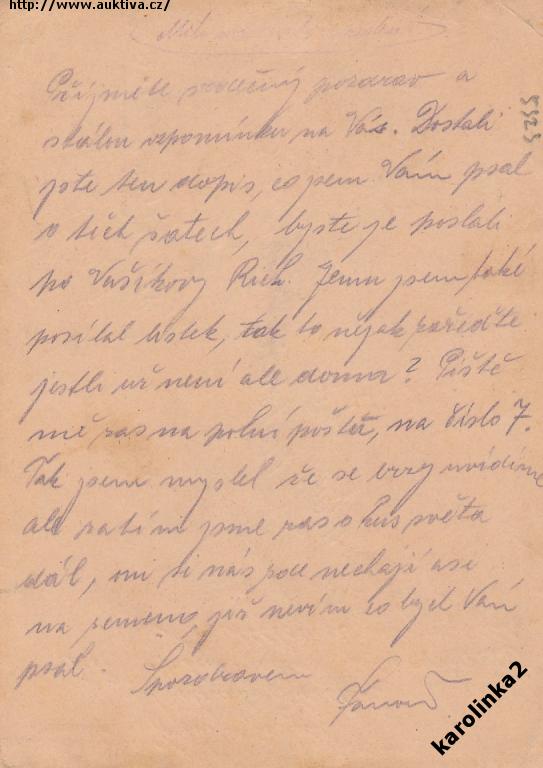 http://www.auktiva.cz/
Příjměte srdečný pozdrav a
stálou vzpomínku na Vás. Dostali
jste ten dopis, co jsem Vám psal
o těch šatech, byste je poslali
po Vašíkovy Rich. Jemu jsem také
posílal lístek, tak to nějak zařeďte
jestli už není ale doma? Pište
mě zas na polní poštu, na číslo 7.
Tak jsem myslel že se brzy uvidíme
ale zatím jsme zas o kus světa
dál, oni ti nás nechají ase
na, již nevím co bych Vám
psal. S pozdravem
5325
karolinka2